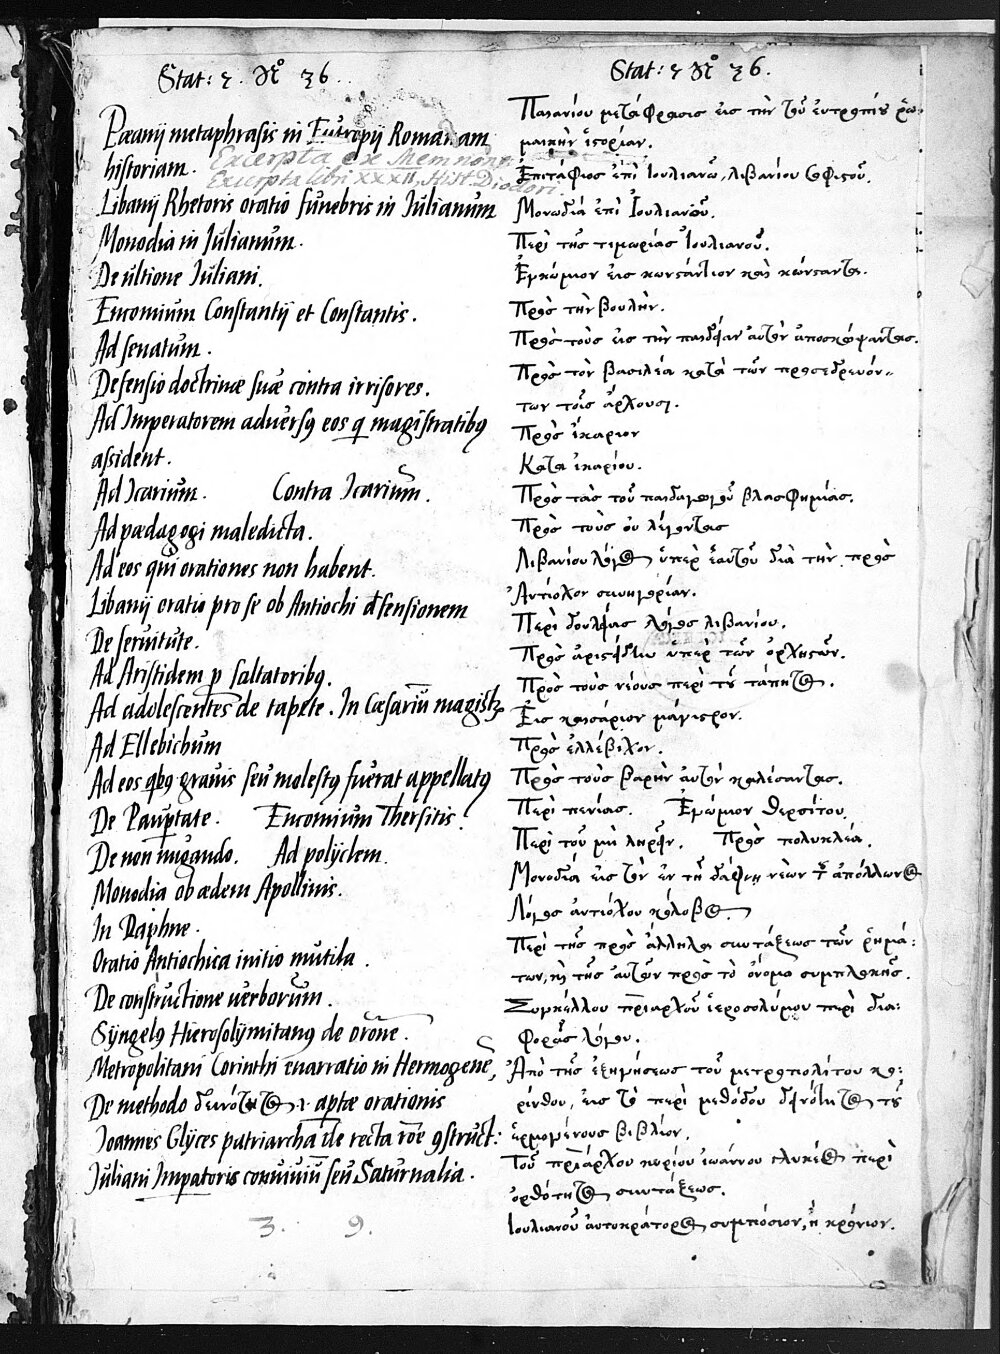 Stat: 3. Nº 36.
Pæanij metaphrasis in Eutropij Romanam
historiam. Excerpta ex Memnone
Excerpta libri XXXII, Hist. Diodori.
Libanij Rhetoris oratio funebris in Iulianum
Monodia in Iulianum.
De ultione Iuliani.
Encomium Constantij et Constantis.
Ad senatum.
Defensio doctrinæ suæ contra irrisores.
Ad Imperatorem adversꝰ eos q̃ magistratibꝰ
assident.
Ad Icarium. Contra Icarium.
Ad pædagogi maledicta.
Ad eos qui orationes non habent.
Libanij oratio pro se ob Antiochi defensionem
De servitute.
Ad Aristidem p saltatoribꝰ.
Ad adolescentes de tapete. In Cæsariũ magistꝝ
Ad Ellebichum
Ad eos qbꝰ gravis seu molestꝰ fuerat appellatꝰ
De Paupertate. Encomium Thersitis.
De non nugando. Ad polÿclem.
Monodia ob ædem Apollinis.
In Daphne.
Oratio Antiochica initio mutila.
De constructione uerborum.
Sÿngelꝰ Hierosolÿmitanꝰ de orõne.
Metropolitani Corinthi enarratio in Hermogenẽ,
De methodo δεινότητος. aptæ orationis
Ioannes Glÿces patriarcha de recta rõe ꝯstruct:
Iuliani Impatoris conuiuiũ seu Saturnalia.
3. 9.
Stat: 3 Nº 36.
Παιανίου μετάφρασις εἰς τὴν τοῦ εὐτροπίου ῥω-
μαικὴν ἱστορίαν.
Ἐπιτάφιος ἐπὶ Ἰουλιανῷ, λιβανίου σοφιστοῦ.
Μονωδία ἐπὶ Ἰουλιανοῦ.
Περὶ τῆς τιμωρίας Ἰουλιανοῦ.
Ἐγκώμιον εἰς κωνστάντιον καὶ κώνσταντα.
Πρὸς τὴν βουλὴν.
Πρὸς τοὺς εἰς τὴν παιδείαν αὐτὸν ἀποσκώψαντας.
Πρὸς τὸν βασιλέα κατὰ τῶν προσεδρευόν-
των τοῖς ἄρχουσι.
Πρὸς ἰκάριον
Κατα ἰκαρίου.
Πρὸς τὰς τοῦ παιδαγωγοῦ βλασφημίας.
Πρὸς τοὺς οὐ λέγοντας
Λιβανίου λόγος ὑπὲρ ἑαυτοῦ διὰ τὴν πρὸς
Ἀντίοχον συνηγορίαν.
Περὶ δουλείας λόγος λιβανίου.
Πρὸς ἀριστείδην ὑπὲρ τῶν ὀρχηστῶν.
Πρὸς τοὺς νέους περὶ τοῦ τάπητος.
Εἰς καισάριον μάγιστρον.
Πρὸς ἐλλέβιχον.
Πρὸς τοὺς βαρὺν αὐτὸν καλέσαντας.
Περὶ πενίας. Ἐγκώμιον Θερσίτου
Περὶ τοῦ μὴ ληρεῖν. Πρὸς πολυκλέα.
Μονωδία εἰς τὸν ἐν τῇ δάφνῃ νεὼν τοῦ ἀπόλλωνος
Λόγος ἀντιόχου κόλοβος.
Περὶ τῆς πρὸς ἄλληλα συντάξεως τῶν ῥημά:
των, καὶ τῆς αὐτῶν πρὸς τὸ ὄνομα συμπλοκῆς.
Συγκέλλου πριαρχοῦ ἱεροσολύμου περὶ δια:
φορᾶς λόγου.
Ἀπὸ τῆς ἐξηγήσεως τοῦ μετροπολίτου κο:
ρίνθου, εἰς τὸ περὶ μεθόδου δεινότητος τοῦ
ἑρμογένους βιβλίον.
Τοῦ πριάρχου κυρίου ἰωάννου γλυκέος περὶ
ὀρθότητος συντάξεως.
Ἰουλιανοῦ αὐτοκράτορος συμπόσιον, ἢ κρόνιον.